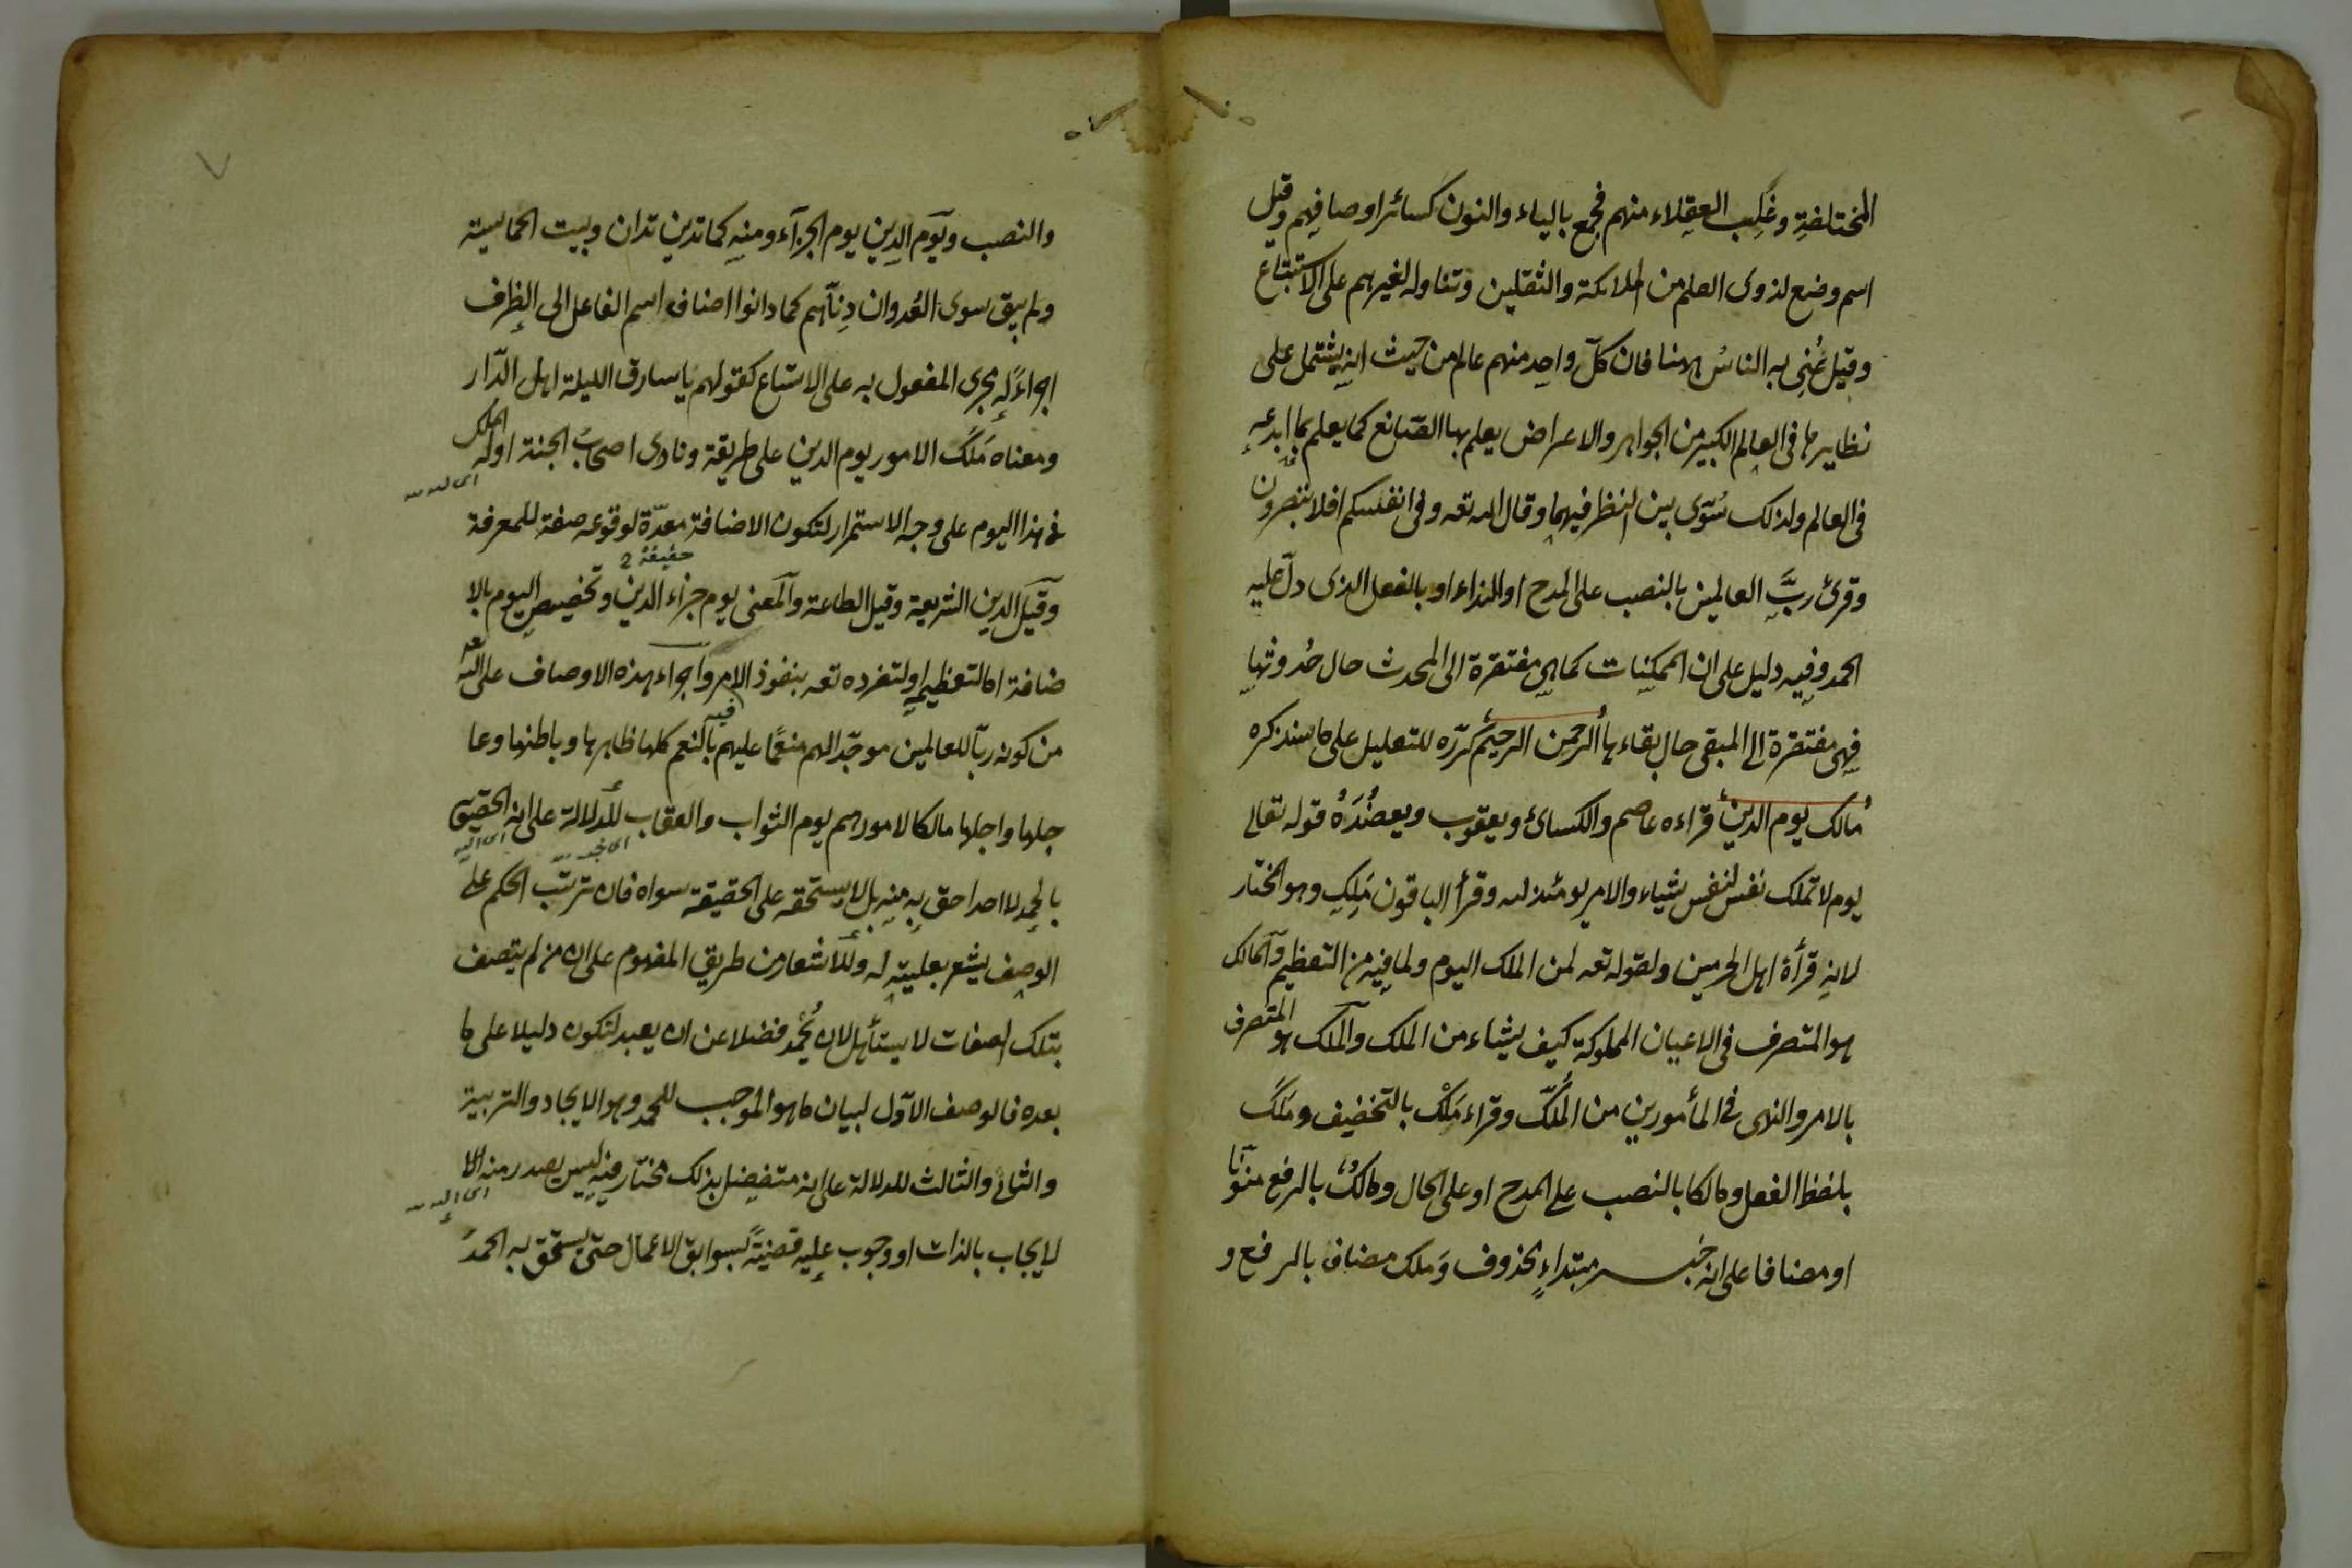 المختلفةِ وغُلِّب العقلاء منهم فجمع بالياء والنون كسائر اوصافهم وقيل
اسم وضع لذوى العلم من الملائكة والثقلين وتناوله لغيرهم على الاستتباع
وقيل عُنِى به الناسُ ههنا فان كلّ واحد منهم عالم من حيث انه يشتمل على
نظايرها فى العالم الكبير من الجواهر والاعراض يعلم بها الصّانع كما يعلم بما ابدعه
فى العالم ولذلك سُوّى بين النظر فيهما وقال الله تعه وفى انفسكم افلا تبصرون
وقرئ ربَّ العالمين بالنصب على المدح او النداء او بالفعل الذى دلّ عليه
الحمد وفيه دليل على ان الممكنات كما هى مفتقرة الى المحدث حال حُدوثها
فهى مفتقرة الى المبقى حال بقاءها الرحمن الرحيم كرّره للتعليل على ما سنذكره
مالك يوم الدين قراءه عاصم والكسائ ويعقوب ويعضُدَهُ قوله تعالى
يوم لا تملك نفس لنفس شياء والامر يومئذ لله وقرأ الباقون مَلِكِ وهو المختار
لانه قرأة اهل الحرمين ولقوله تعه لمن الملك اليوم ولما فيه من التعظيم والمالك
هو المتصرف فى الاعيان المملوكة كيف يشاء من الملك والملك هو المتصرف
بالامر والنهى فى المأمورين من المُلك وقراء مَلْك بالتخفيف ومَلَكَ
بلفظ الفعل ومالكا بالنصب على المدح او على الحال ومالكٌ بالرفع منوّنا
او مضافا على انه خبر مبتداءٍ محذوف وَملك مضاف بالرفع و
والنصب ويوم الدين يوم الجزآء ومنه كما تدين تدان وبيت الحماسيّة
ولم يبق سوى العُدوان دِنّاهم كما دانوا اضاف اسم الفاعل الى الظرف
اجراءً له مجرى المفعول به على الاتساع كقولهم يا سارق الليلة اهل الدّار
ومعناه مَلَكَ الامور يوم الدين على طريقة ونادى اصحابُ الجنة او له الملك
فى هذا اليوم على وجه الاستمرار لتكون الاضافة معدّة لوقوعه صفة للمعرفة
حقيقة
وقيل الدين الشريعة وقيل الطاعة والمعنى يوم جزاء الدين وتخصيص اليوم بالا
ضافة اما لتعظيمه او لتفرده تعه بنفوذ الامر فيه واجراء هذه الاوصاف على الله تعه
من كونه ربّا للعالمين موجّدا لهم منعمًا عليهم بالنعم كلها ظاهرها وباطنها وعا
جلها واجلها مالكا لامورهم يوم الثواب والعقاب للدلالة على انه الحقيق
بالحمد لا احد احق به منه بل لا يستحقه على الحقيقة سواه فان ترتب الحكم على
الوصف يشعر بعليته له وللاشعار من طريق المفهوم على ان من لم يتصف
بتلك الصفات لا يستأهل لان يُحمد فضلا عن ان يعبد لتكون دليلا على ما
بعده فالوصف الاوّل لبيان ما هو الموجب للحمد وهو الايجاد والتربية
والثانى والثالث للدلالة على انه متفضل بذلك مختار فيه ليس يصدر منه الا
لايجاب بالذات او وجوب عليه قضيّةً لسوابق الاعمال حتى يستحق به الحمدُ